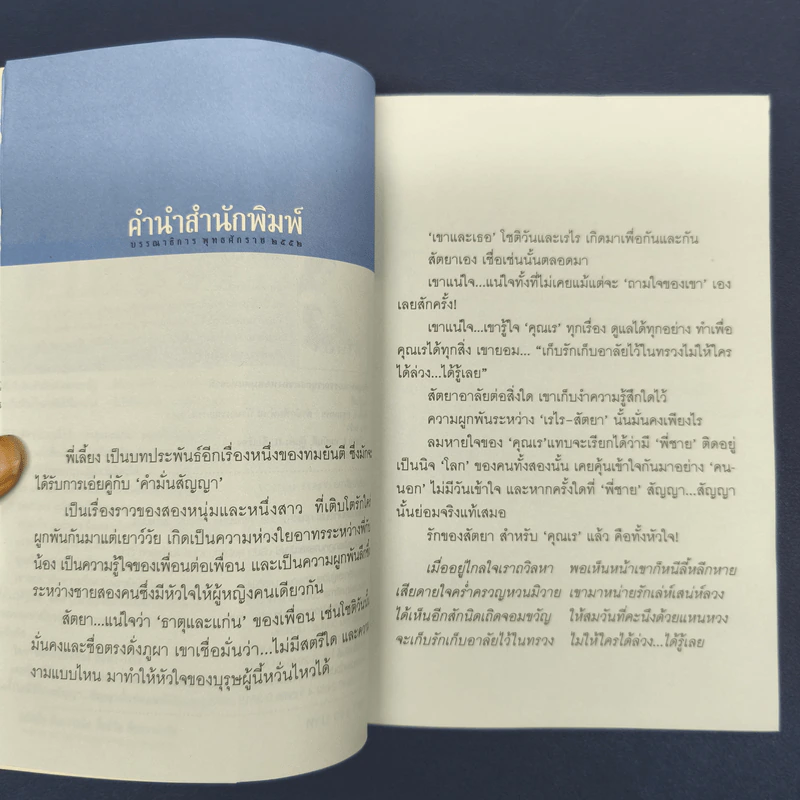 คำนำสำนักพิมพ์
บรรณาธิการ พุทธศักราช ๒๕๕๒
พี่เลี้ยง เป็นบทประพันธ์อีกเรื่องหนึ่งของทมยันตี ซึ่งมักจะ
ได้รับการเอ่ยคู่กับ ‘คำมั่นสัญญา’
เป็นเรื่องราวของสองหนุ่มและหนึ่งสาว ที่เติบโตรักใคร่
ผูกพันกันมาแต่เยาว์วัย เกิดเป็นความห่วงใยอาทรระหว่าง
น้อง เป็นความรู้ใจของเพื่อนต่อเพื่อน และเป็นความผูกพัน
ระหว่างชายสองคนซึ่งมีหัวใจให้ผู้หญิงคนเดียวกัน
สัตยา...แน่ใจว่า ‘ธาตุและแก่น’ ของเพื่อน เช่นโชติวันนั้น
มั่นคงและซื่อตรงดั่งภูผา เขาเชื่อมั่นว่า...ไม่มีสตรีใด และ
งามแบบไหน มาทำให้หัวใจของบุรุษผู้นี้หวั่นไหวได้
‘เขาและเธอ’ โชติวันและเรไร เกิดมาเพื่อกันและกัน
สัตยาเอง เชื่อเช่นนั้นตลอดมา
เขาแน่ใจ...แน่ใจทั้งที่ไม่เคยแม้แต่จะ ‘ถามใจของเขา’ เอง
เลยสักครั้ง!
เขาแน่ใจ...เขารู้ใจ ‘คุณเร’ ทุกเรื่อง ดูแลได้ทุกอย่าง ทำเพื่อ
คุณเรได้ทุกสิ่ง เขายอม... “เก็บรักเก็บอาลัยไว้ในทรวงไม่ให้ใคร
ได้ล่วง...ได้รู้เลย”
สัตยาอาลัยต่อสิ่งใด เขาเก็บงำความรู้สึกใดไว้
ความผูกพันระหว่าง ‘เรไร-สัตยา’ นั้นมั่นคงเพียงไร
ลมหายใจของ ‘คุณเร’แทบจะเรียกได้ว่ามี ‘พี่ชาย’ ติดอยู่
เป็นนิจ ‘โลก’ ของคนทั้งสองนั้น เคยคุ้นเข้าใจกันมาอย่าง ‘คน-
นอก’ ไม่มีวันเข้าใจ และหากครั้งใดที่ ‘พี่ชาย’ สัญญา...สัญญา
นั้นย่อมจริงแท้เสมอ
รักของสัตยา สำหรับ ‘คุณเร’ แล้ว คือทั้งหัวใจ!
เมื่ออยู่ไกลใจเราถวิลหา พอเห็นหน้าเขาก็หนีลี้หลีกหาย
เสียดายใจคร่ำครวญหวนมิวาย เขามาหน่ายรักเล่ห์เสน่ห์ลวง
ได้เห็นอีกสักนิดเถิดจอมขวัญ ให้สมวันที่คะนึงด้วยแหนหวง
จะเก็บรักเก็บอาลัยไว้ในทรวง ไม่ให้ใครได้ล่วง...ได้รู้เลย